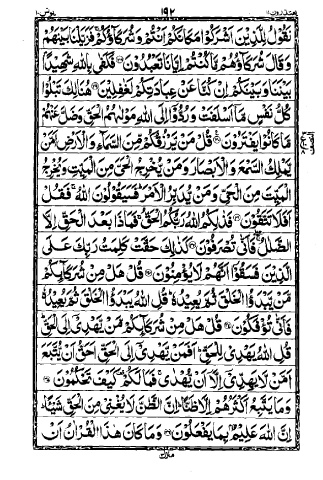 يعتذرون ١١ ١٩٢ يونس ١٠
نَقُولُ لِلَّذِينَ أَشْرَكُوا مَكَانَكُمْ أَنْتُمْ وَشُرَكَاؤُكُمْ فَزَيَّلْنَا بَيْنَهُمْ
وَقَالَ شُرَكَاؤُهُمْ مَا كُنْتُمْ إِيَّانَا تَعْبُدُونَ فَكَفَى بِاللَّهِ شَهِيدًا
بَيْنَنَا وَبَيْنَكُمْ إِنْ كُنَّا عَنْ عِبَادَتِكُمْ لَغَافِلِينَ هُنَالِكَ تَبْلُوا
كُلُّ نَفْسٍ مَا أَسْلَفَتْ وَرُدُّوا إِلَى اللَّهِ مَوْلَاهُمُ الْحَقِّ وَضَلَّ عَنْهُمْ
مَا كَانُوا يَفْتَرُونَ قُلْ مَنْ يَرْزُقُكُمْ مِنَ السَّمَاءِ وَالْأَرْضِ أَمَّنْ
يَمْلِكُ السَّمْعَ وَالْأَبْصَارَ وَمَنْ يُخْرِجُ الْحَيَّ مِنَ الْمَيِّتِ وَيُخْرِجُ
الْمَيِّتَ مِنَ الْحَيِّ وَمَنْ يُدَبِّرُ الْأَمْرَ فَسَيَقُولُونَ اللَّهُ فَقُلْ
أَفَلَا تَتَّقُونَ فَذَلِكُمُ اللَّهُ رَبُّكُمُ الْحَقُّ فَمَاذَا بَعْدَ الْحَقِّ إِلَّا
الضَّلَالُ فَأَنَّى تُصْرَفُونَ كَذَلِكَ حَقَّتْ كَلِمَتُ رَبِّكَ عَلَى
الَّذِينَ فَسَقُوا أَنَّهُمْ لَا يُؤْمِنُونَ قُلْ هَلْ مِنْ شُرَكَائِكُمْ
مَنْ يَبْدَؤُا الْخَلْقَ ثُمَّ يُعِيدُهُ قُلِ اللَّهُ يَبْدَؤُا الْخَلْقَ ثُمَّ يُعِيدُهُ
فَأَنَّى تُؤْفَكُونَ قُلْ هَلْ مِنْ شُرَكَائِكُمْ مَنْ يَهْدِي إِلَى الْحَقِّ
قُلِ اللَّهُ يَهْدِي لِلْحَقِّ أَفَمَنْ يَهْدِي إِلَى الْحَقِّ أَحَقُّ أَنْ يُتَّبَعَ
أَمَّنْ لَا يَهِدِّي إِلَّا أَنْ يُهْدَى فَمَا لَكُمْ كَيْفَ تَحْكُمُونَ
وَمَا يَتَّبِعُ أَكْثَرُهُمْ إِلَّا ظَنًّا إِنَّ الظَّنَّ لَا يُغْنِي مِنَ الْحَقِّ شَيْئًا
إِنَّ اللَّهَ عَلِيمٌ بِمَا يَفْعَلُونَ وَمَا كَانَ هَذَا الْقُرْآنُ أَنْ
منزل